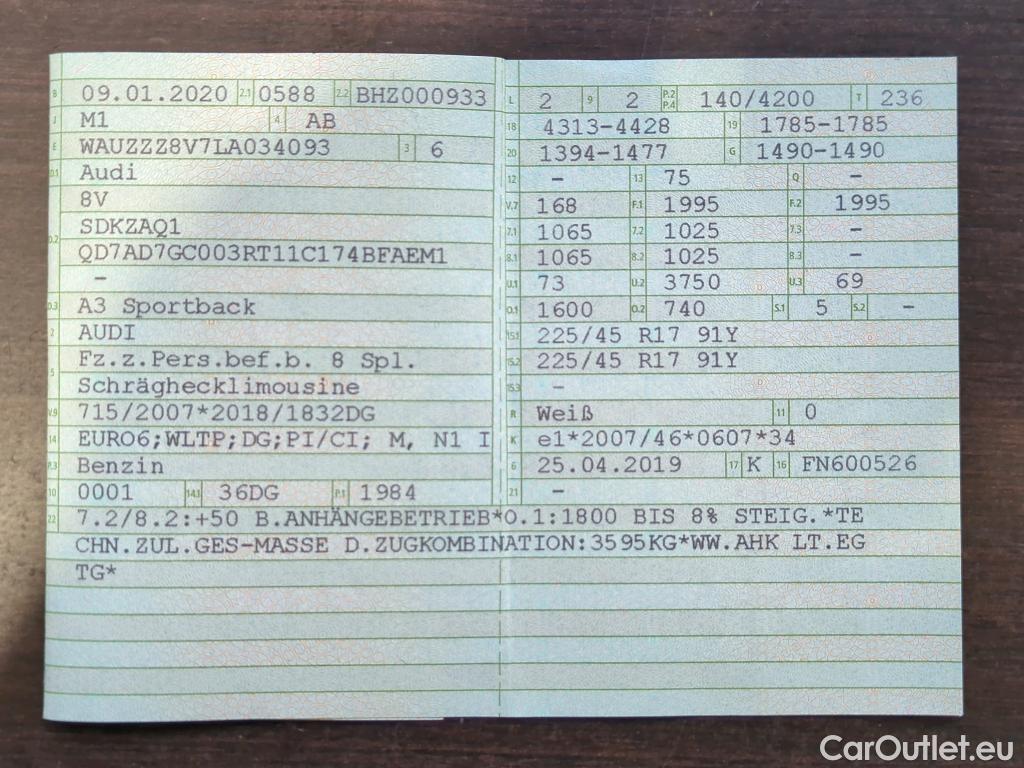 B 09.01.2020 2.1 0588 2.2 BHZ000933
J M1 4 AB
E WAUZZZ8V7LA034093 3 6
D.1 Audi
8V
SDKZAQ1
D.2 QD7AD7GC003RT11C174BFAEM1
–
D.3 A3 Sportback
2 AUDI
Fz.z.Pers.bef.b. 8 Spl.
5 Schräghecklimousine
V.9 715/2007*2018/1832DG
14 EURO6;WLTP;DG;PI/CI; M, N1 I
P.3 Benzin
10 0001 14.1 36DG P.1 1984
L 2 9 2 P.2 P.4 140/4200 T 236
18 4313-4428 19 1785-1785
20 1394-1477 G 1490-1490
12 – 13 75 Q –
V.7 168 F.1 1995 F.2 1995
7.1 1065 7.2 1025 7.3 –
8.1 1065 8.2 1025 8.3 –
U.1 73 U.2 3750 U.3 69
O.1 1600 O.2 740 S.1 5 S.2 –
15.1 225/45 R17 91Y
15.2 225/45 R17 91Y
15.3 –
R Weiß 11 0
K e1*2007/46*0607*34
6 25.04.2019 17 K 16 FN600526
21 –
22 7.2/8.2:+50 B.ANHÄNGEBETRIEB*O.1:1800 BIS 8% STEIG.*TE
CHN.ZUL.GES-MASSE D.ZUGKOMBINATION:3595KG*WW.AHK LT.EG
TG*
CarOutlet.eu